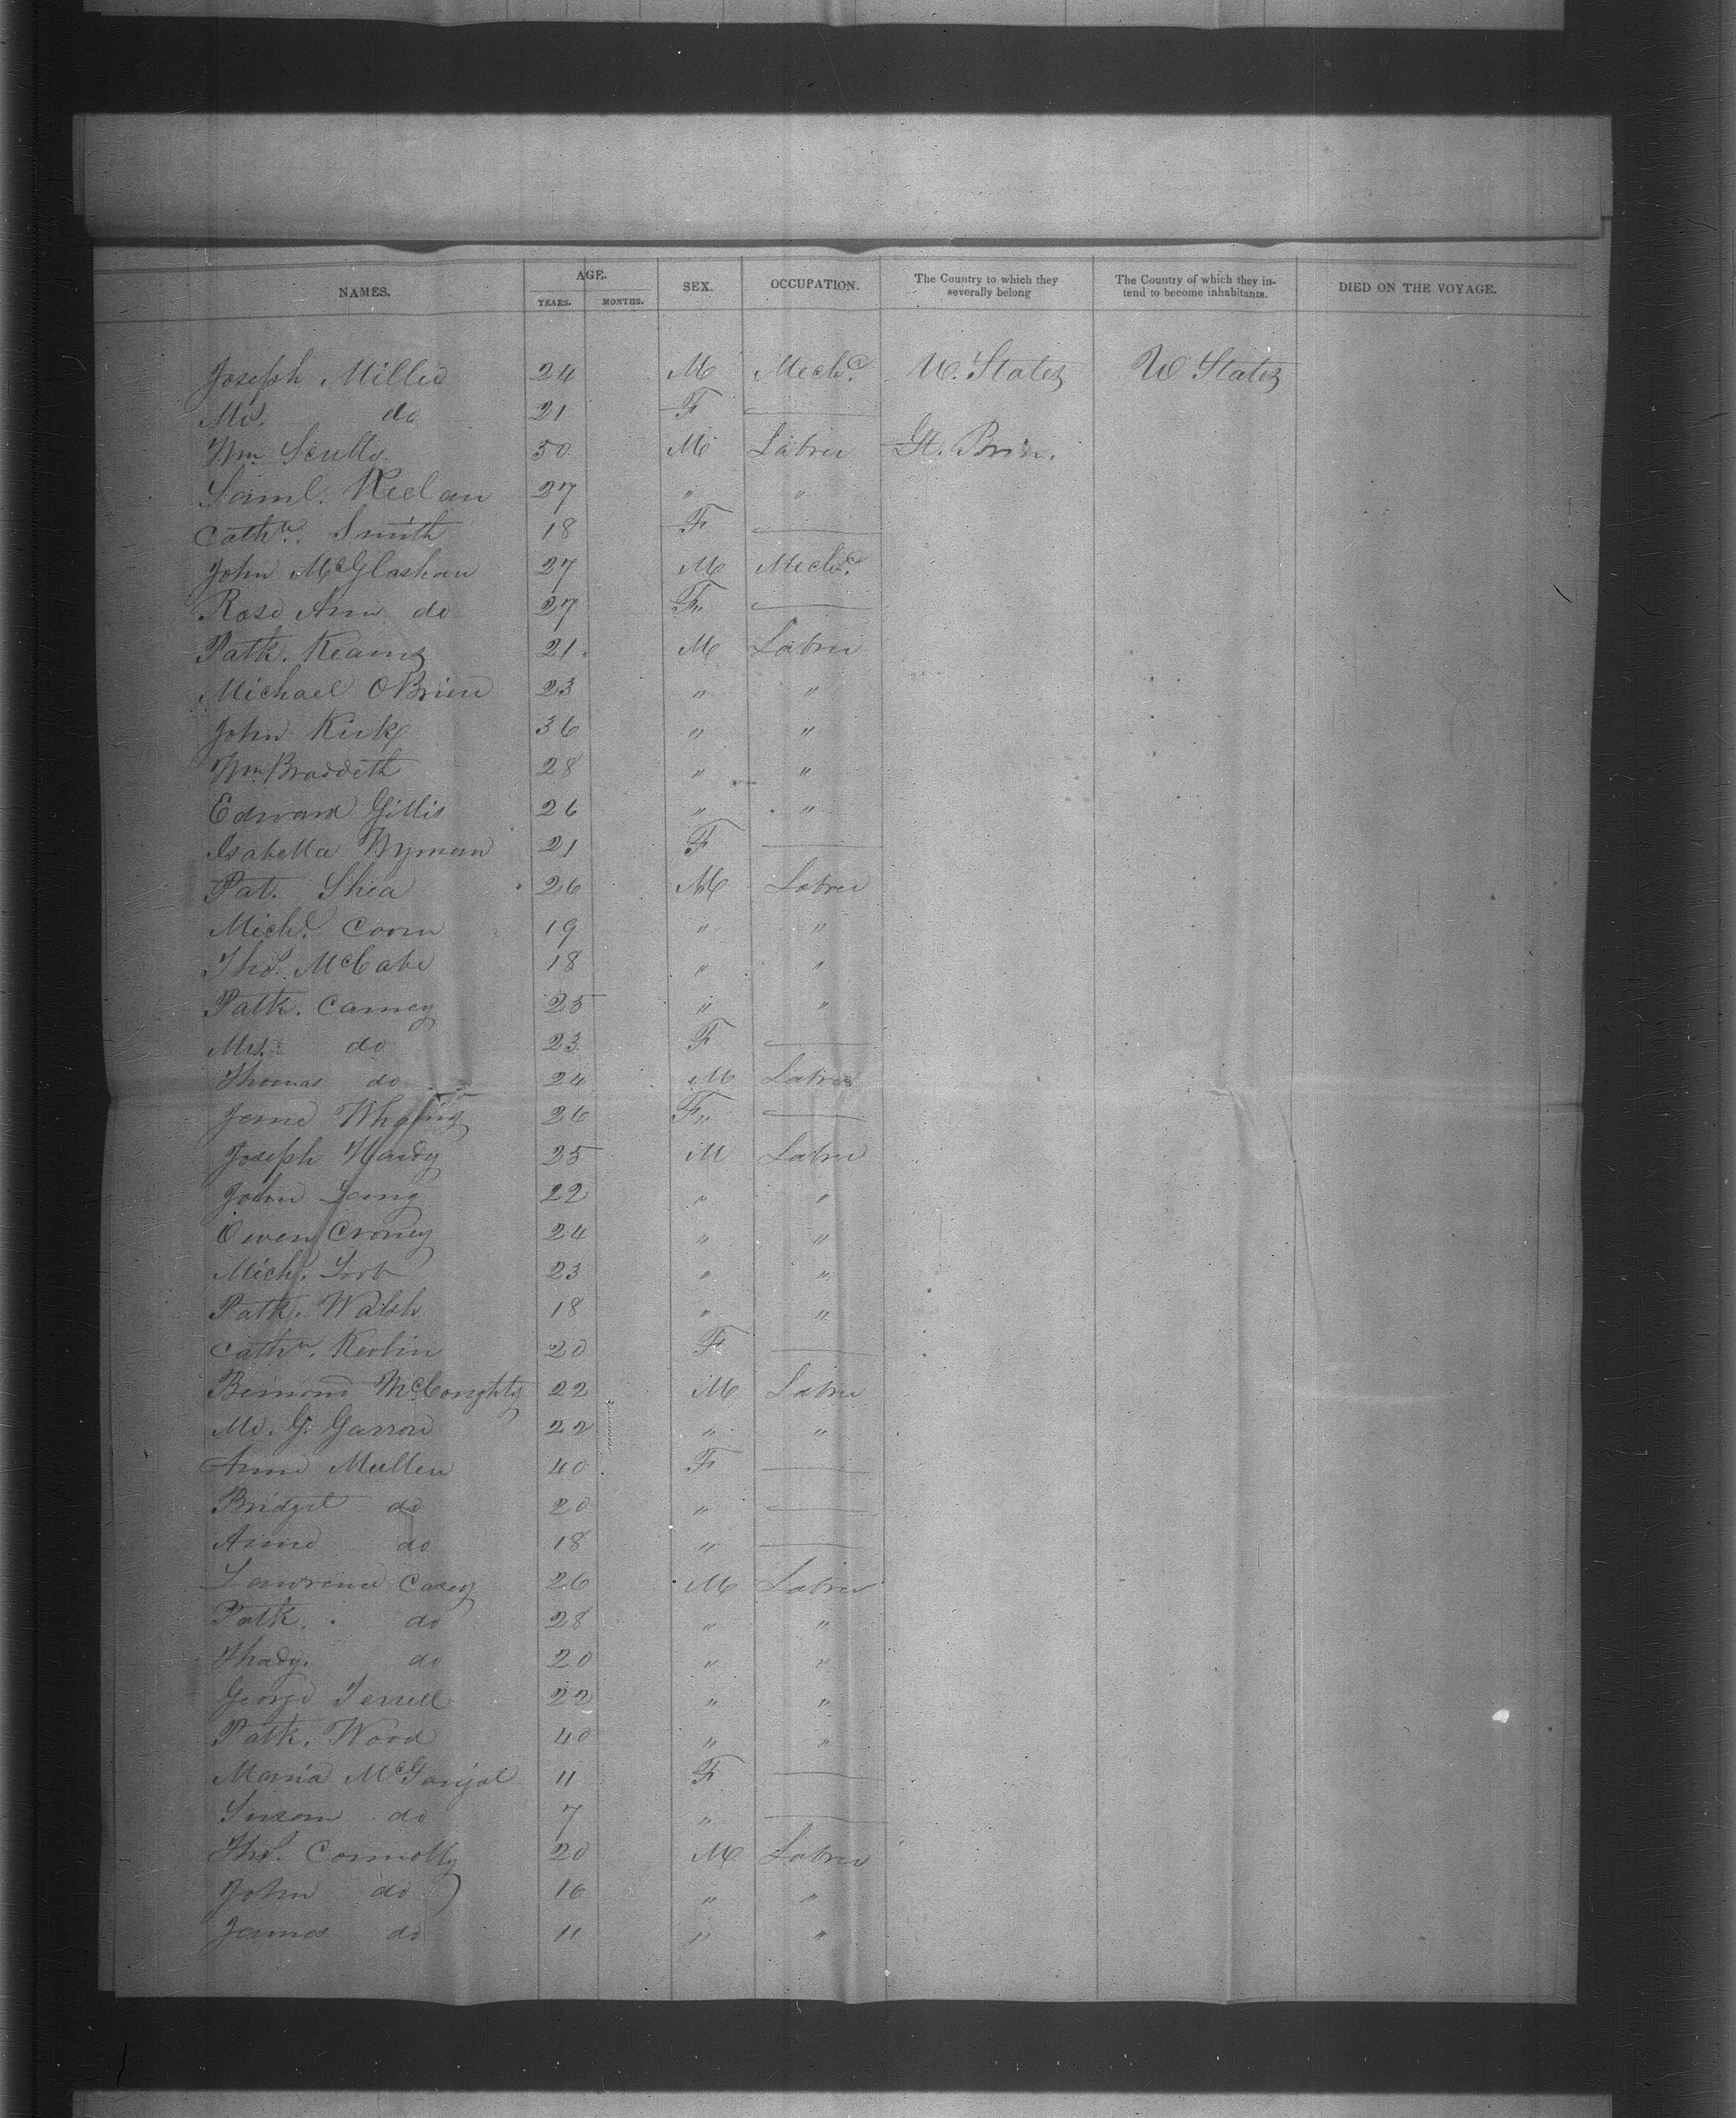 NAMES. AGE. YEARS. MONTHS. SEX. OCCUPATION. The Country to which they severally belong The Country of which they intend to become inhabitants. DIED ON THE VOYAGE.
Joseph Miller 24 M Mechc. U. States U States
Mrs. do 21 F
Wm Scully 50 M Labrer Gt. Britn.
Saml. Keelan 27 " "
Cathn. Smith 18 F
John McGlashan 27 M Mechc.
Rose Ann do 27 F
Patk. Kearns 21 M Labrer
Michael OBrien 23 " "
John Kirk 36 " "
Wm Braddeth 28 " "
Edward Gillis 26 " "
Isabella Wyman 21 F
Pat. Shea 26 M Labrer
Michl. Coorn 19 " "
Thos. McCabe 18 " "
Patk. Carney 25 " "
Mrs. do 23 F
Thomas do 24 M Labrer
Jane 26 F
Joseph Hardy 25 M Labrer
John Laing 22 " "
Owen Croney 24 " "
Michl. 23 " "
Patk. Walsh 18 " "
Cathn. Kerlin 20 F
Bernard McConghty 22 M Labrer
Mr. G. Garron 22 " "
Anne Mullen 40 F
Bridget do 20 "
Anne do 18 "
Lawrence Casey 26 M Labrer
Patk. do 28 " "
Thady. do 20 " "
George Terrell 22 " "
Patk. Wood 40 " "
Maria McGonjal 11 F
Susan do 7 "
Thos. Connolly 20 M Labrer
John do 16 " "
James do 11 " "